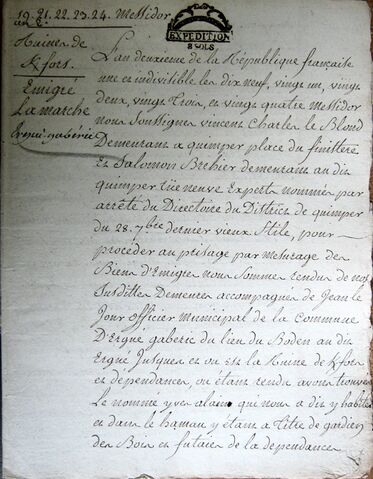 19. 21. 22. 23. 24. Messidor
an 2.
EXPEDITION
8 SOLS
Ruines de
Kfors.
Emigré
Lamarche
Ergué gabéric
L'an deuxieme de la République française
une et indivisible les dix neuf, vingt un, vingt
deux, vingt trois, et vingt quatre Messidor
nous Soussignés vincent Charles le Blond
Demeurant a quimper place du finistère
et Salomon Brehier demeurant au dit
quimper rüe neuve Experts nommés par
arrêté du Directoire du District de quimper
du 28. 7bre dernier vieux Stile, pour
procéder au prisage par mesurage des
Biens d'Emigrés nous Somme rendus de nos
Susdittes Demeures accompagnés de Jean le
Jour officier Municipal de la Commune
D'Ergué gaberic du lieu du Boden au dit
Ergué Jusques et ou est la Ruine de Kfors
et dépendances, ou étant rendu avons trouvés
Le nommé yves alain qui nous a dit y habiter
et dans le hamau y étant a Titre de gardien
des Bois et futaies de la dependances